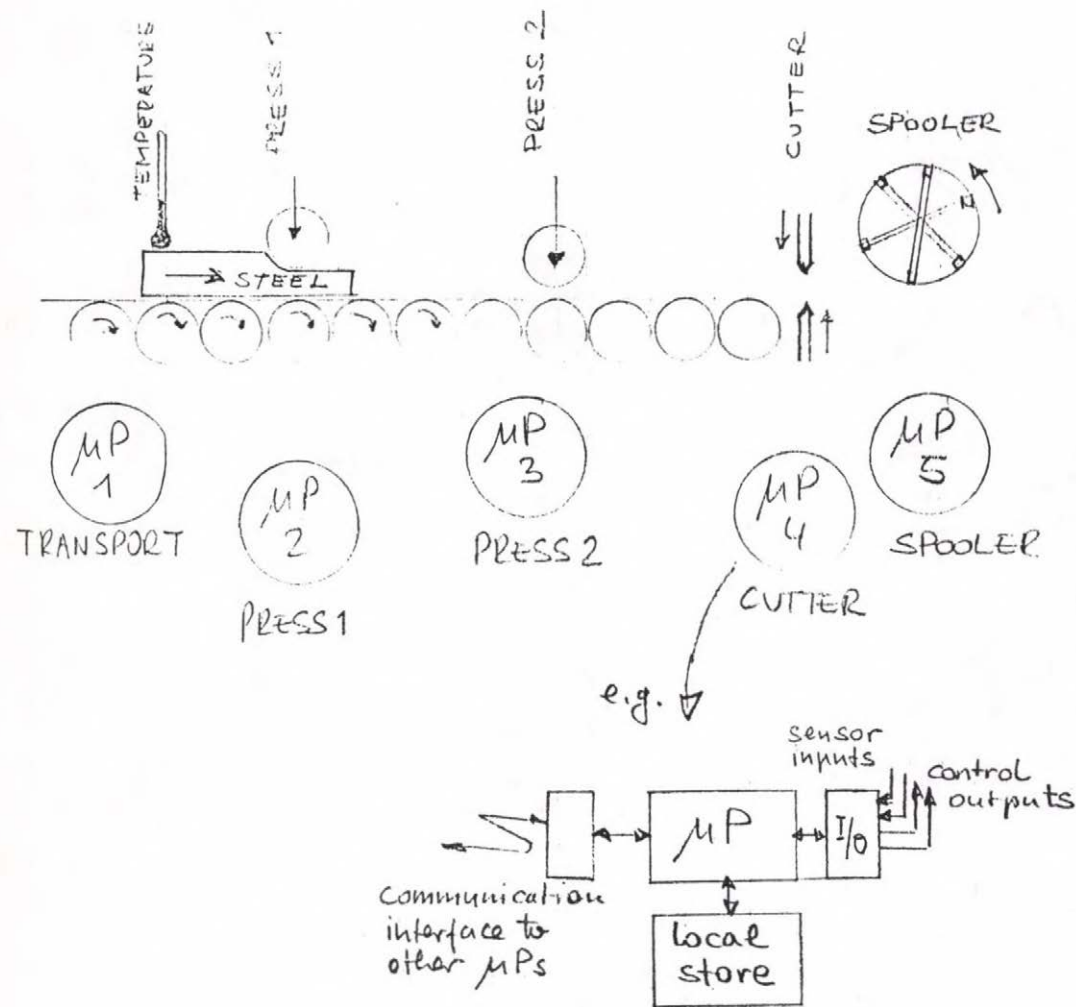 TEMPERATURE
PRESS 1
PRESS 2
CUTTER
SPOOLER
STEEL
μP
1
TRANSPORT
μP
2
PRESS 1
μP
3
PRESS 2
μP
4
CUTTER
μP
5
SPOOLER
e.g.
sensor
inputs
control
outputs
μP
I/O
communication
interface to
other μPs
local
store